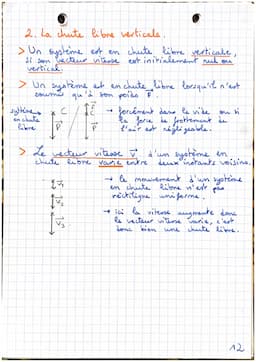 2. La chute libre verticale.
> Un système est en chute libre verticale,
si son vecteur vitesse est initialement nul ou
vertical.
> Un système est en chute libre lorsqu'il n'est
soumis qu'à son poids P.
système
en chute
libre
C
P
C
P
→ forcément dans le vide ou si
la force de frottement de
l'air est négligeable.
> Le vecteur vitesse v d'un système en
chute libre varie entre deux instants voisins.
V1
V2
V3
→ le mouvement d'un système
en chute libre n'est pas
rectiligne uniforme.
→ ici la vitesse augmente donc
le vecteur vitesse varie, c'est
donc bien une chute libre.
12